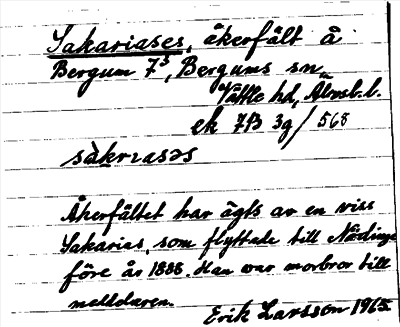 Sakariases, åkerfält å
Bergum 7³, Bergums sn,
Vättle hd, Älvsb.l.
ek 7B 3g/568
sàkrıasəs
Åkerfältet har ägts av en viss
Sakarias, som flyttade till Nödinge
före år 1888. Han var morbror till
meddelaren.
Erik Larsson 1965